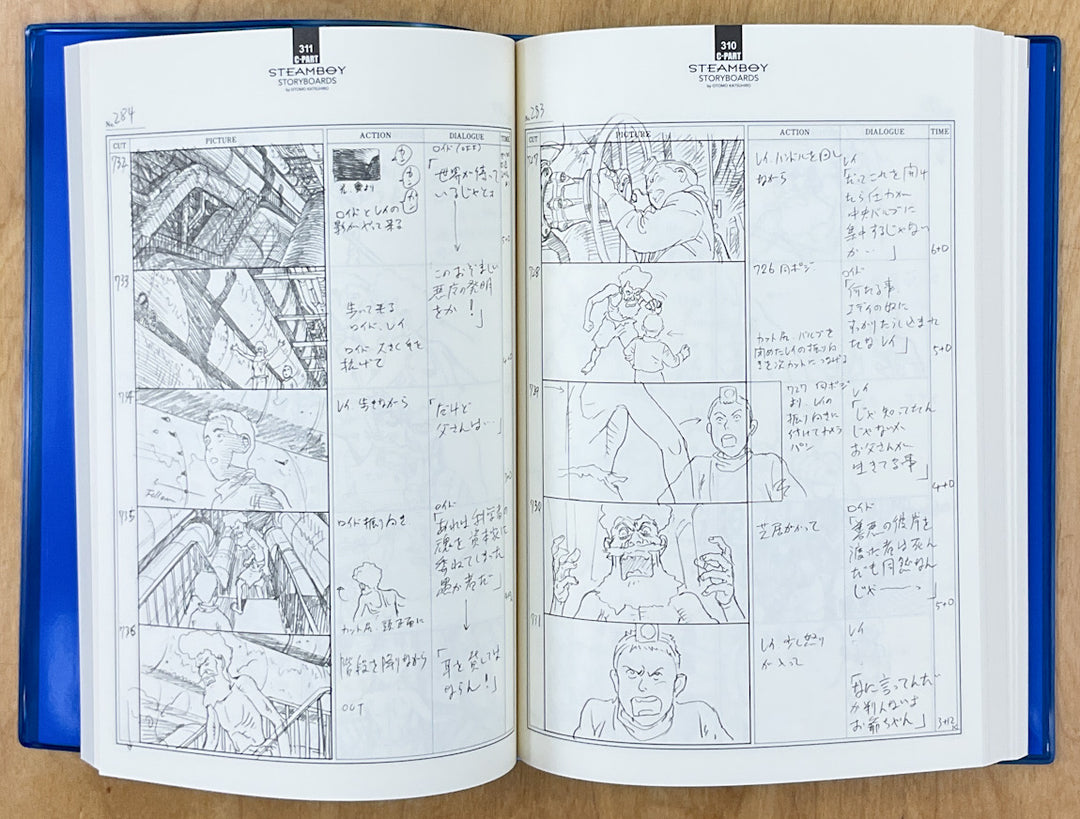 310
C-PART
STEAMBOY
STORYBOARDS
by OTOMO KATSUHIRO
No. 283
CUT PICTURE ACTION DIALOGUE TIME
727
レイ、ハンドルを回し
ながら
レイ
「だってこれを開け
たら圧力が
中央バルブに
集中するじゃない
か…」
6+0
728
726 同ポジ
カット尻、バルブを
閉めたレイの振り向
きを次カットにつなげる
ロイド
「何たる事、
エディの奴に
すっかりたらし込まれ
たなレイ」
5+0
729
727 同ポジ
より、レイの
振り向きに
付けてカメラ
パン
レイ
「じゃ知ってたん
じゃないか
お父さんが
生きてる事」
4+0
730
芝居がかって
ロイド
「善悪の彼岸を
渡った者は死ん
だも同然なん
じゃーーっ」
5+0
731
レイ、少し怒り
が入って
レイ
「何言ってんだ
か判んないよ
お爺ちゃん」
3+12
311
C-PART
STEAMBOY
STORYBOARDS
by OTOMO KATSUHIRO
No. 284
CUT PICTURE ACTION DIALOGUE TIME
732
ロイドとレイの
影がやって来る
「世界が待って
いるじゃとよ
733
歩いて来る
ロイド、レイ
ロイド大きく手を
拡げて
このおぞましい
悪魔の発明
をか!」
734
レイ、歩きながら
「だけど
父さんは…」
Follow
735
ロイド振り向き
カット尻、頭正面に
ロイド
「あれは科学者の
魂を資本家に
委ねてしまった
愚か者だ」
736
階段を降りながら
OUT
「耳を貸しては
ならん!」